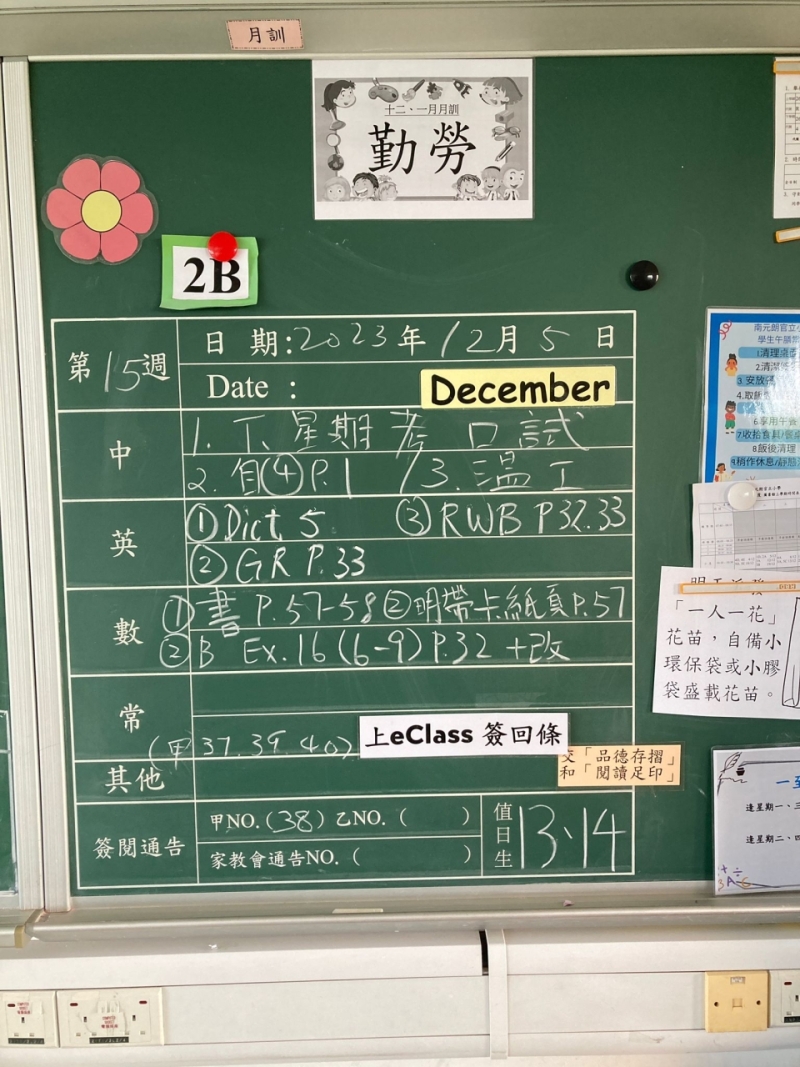 月訓
十二、一月月訓
勤勞
2B
第15週
日 期:2023年12月5日
Date :
December
中
1. 下星期考口試
2. 自④P.1 3. 溫工
英
① Dict. 5 ③ RWB P32.33
② GR P.33
數
① 書 P.57-58 ② 明帶卡紙頁P.57
② B Ex.16 (6-9) P.32 +改
常
(甲 37. 39. 40)
上eClass 簽回條
其他
交「品德存摺」
和「閱讀足印」
簽閱通告
甲NO.(38) 乙NO.( )
家教會通告NO.( )
值日生
13、14
南元朗官立小
學生午膳
1.清理桌
2.清潔
3 安放
4.取飯
6.享用午
7.收拾食具/餐
8.飯後清理
9.稍作休息/靜態
「一人一花」
花苗，自備小
環保袋或小膠
袋盛載花苗。
逢星期一、三
逢星期二、四